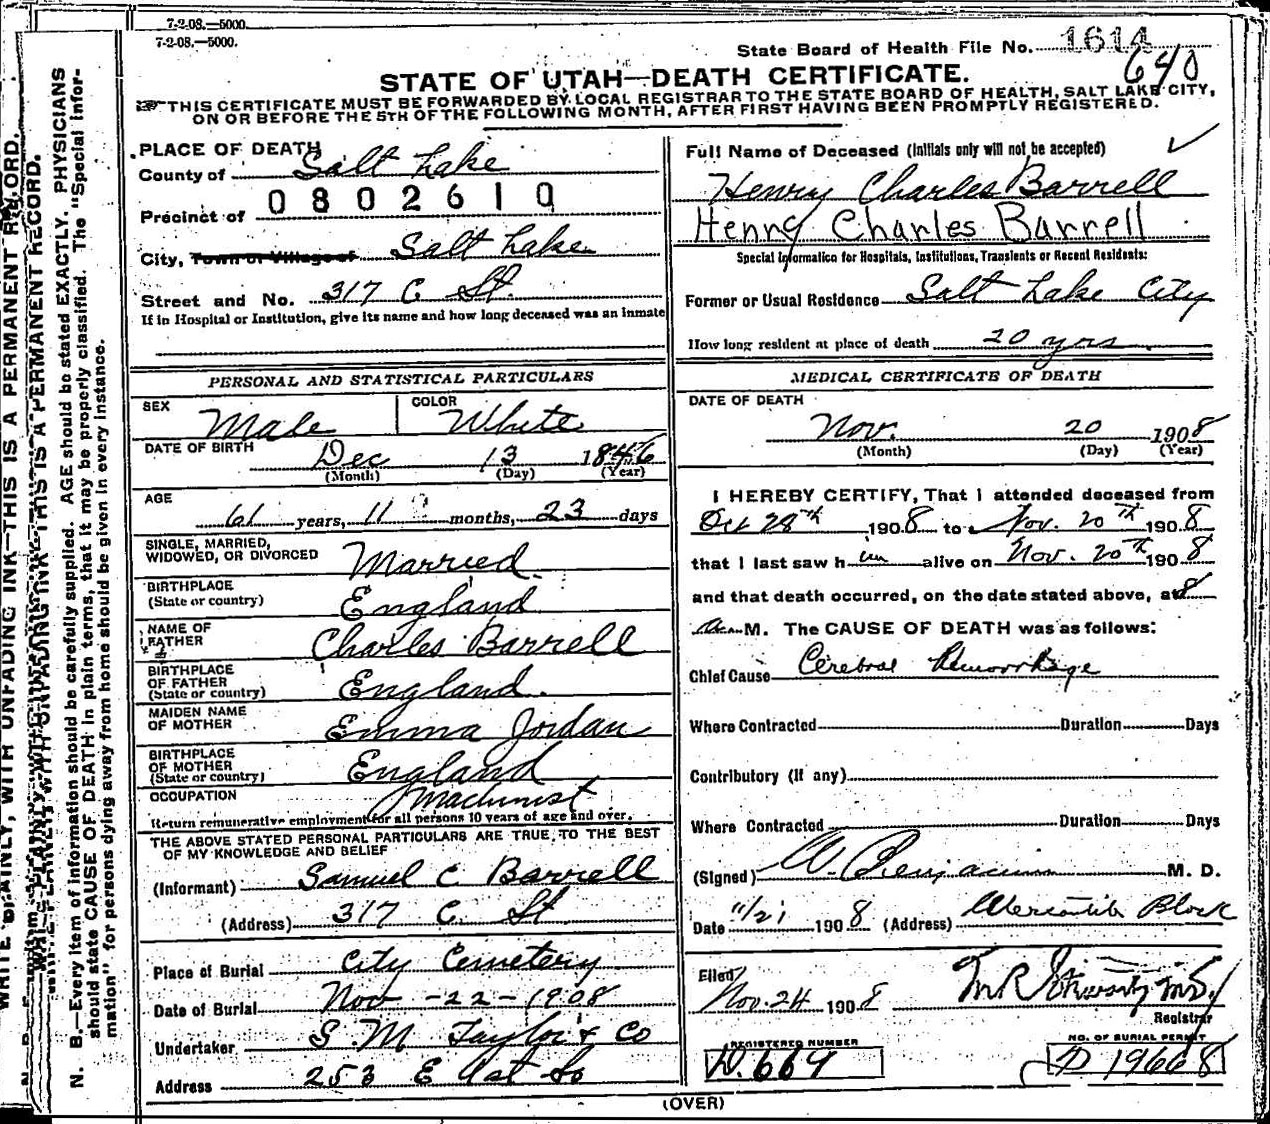 7-2-08.—5000.
7-2-08.—5000.
State Board of Health File No. 1614
640
STATE OF UTAH—DEATH CERTIFICATE.
THIS CERTIFICATE MUST BE FORWARDED BY LOCAL REGISTRAR TO THE STATE BOARD OF HEALTH, SALT LAKE CITY,
ON OR BEFORE THE 5TH OF THE FOLLOWING MONTH, AFTER FIRST HAVING BEEN PROMPTLY REGISTERED.
PLACE OF DEATH
County of Salt Lake
0802610
Precinct of
City, Town or Village of Salt Lake
Street and No. 317 C St.
If in Hospital or Institution, give its name and how long deceased was an inmate
PERSONAL AND STATISTICAL PARTICULARS
SEX Male COLOR White
DATE OF BIRTH Dec 13 1846
(Month) (Day) (Year)
AGE 61 years, 11 months, 23 days
SINGLE, MARRIED,
WIDOWED, OR DIVORCED Married
BIRTHPLACE
(State or country) England
NAME OF
FATHER Charles Barrell
BIRTHPLACE
OF FATHER
(State or country) England.
MAIDEN NAME
OF MOTHER Emma Jordan
BIRTHPLACE
OF MOTHER
(State or country) England
OCCUPATION Machinist
Return remunerative employment for all persons 10 years of age and over.
THE ABOVE STATED PERSONAL PARTICULARS ARE TRUE TO THE BEST
OF MY KNOWLEDGE AND BELIEF
(Informant) Samuel C. Barrell
(Address) 317 C. St
Place of Burial City Cemetery
Date of Burial Nov -22-1908
Undertaker S. M Taylor & Co
Address 253 E 1st So
Full Name of Deceased (Initials only will not be accepted)
Henry Charles Barrell
Henry Charles Barrell
Special Information for Hospitals, Institutions, Transients or Recent Residents:
Former or Usual Residence Salt Lake City
How long resident at place of death 20 yrs.
MEDICAL CERTIFICATE OF DEATH
DATE OF DEATH
Nov. 20 1908
(Month) (Day) (Year)
I HEREBY CERTIFY, That I attended deceased from
Oct 28th 1908 to Nov. 20th 1908
that I last saw him alive on Nov. 20th 1908
and that death occurred, on the date stated above, at 8
a. M. The CAUSE OF DEATH was as follows:
Chief Cause Cerebral Hemorrhage
Where Contracted Duration Days
Contributory (if any)
Where Contracted Duration Days
(Signed) M. D.
Date 11/21 1908 (Address) Mercantile Block
Filed
Nov. 24 1908
Registrar
REGISTERED NUMBER
D. 669
NO. OF BURIAL PERMIT
D 19668
(OVER)
WRITE PLAINLY, WITH UNFADING INK—THIS IS A PERMANENT RECORD.
N. B.—Every item of information should be carefully supplied. AGE should be stated EXACTLY. PHYSICIANS
should state CAUSE OF DEATH in plain terms, that it may be properly classified. The "Special Infor-
mation" for persons dying away from home should be given in every instance.